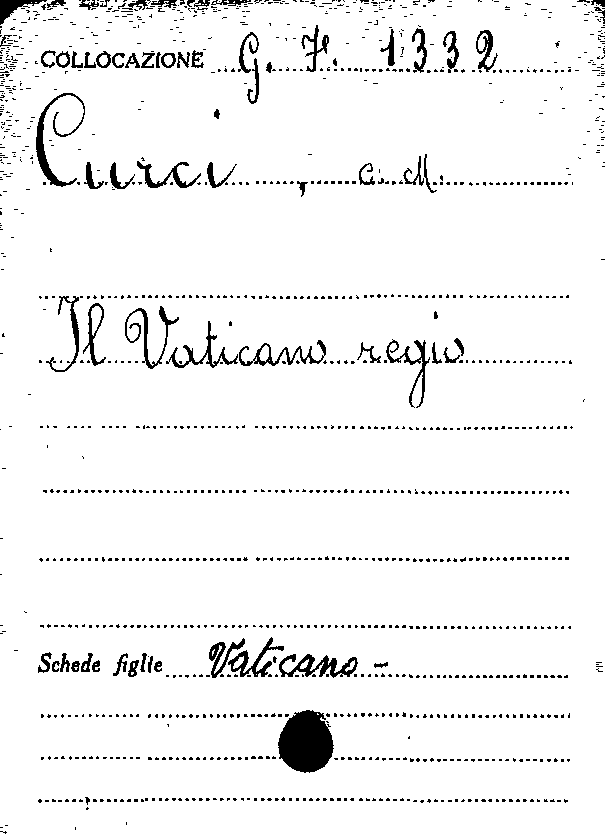 COLLOCAZIONE G. F. 1332
Curci, C. M.
Il Vaticano regio
Schede figlie Vaticano -